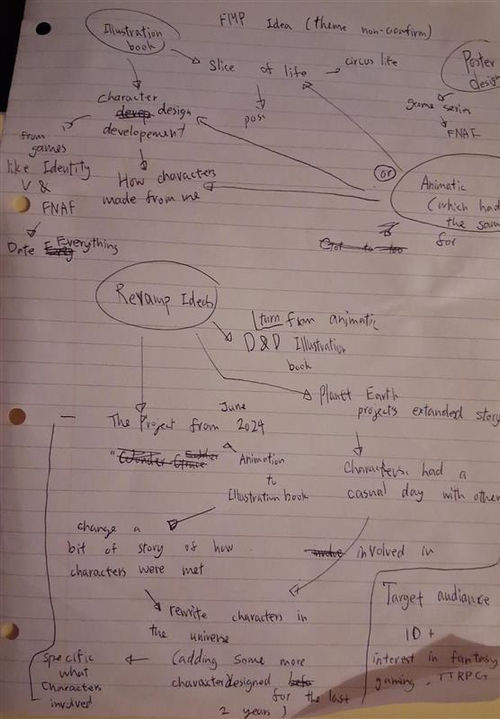 FMP Idea (theme non-confirm)
Illustration
book
Slice of life → circus life
Poster
game series
FNAF
character
design
developement
from
games
like Identity
V &
FNAF
Date Everything
How characters
made from me
or
Animatic
(which had
the sam
for
Revamp Idea
turn from animatic
D&D Illustration
book
Planet Earth
projects extanded story
The Project from June 2024
Animation
to
Illustration book
Characters. had a
casual day with other
change a
bit of story of how
characters were met
involved in
rewrite characters in
the universe
(adding some more
character designed
for the last
2 years)
specific
what
characters
involved
Target audiance
10+
interest in fantasy
gaming, TTRPG